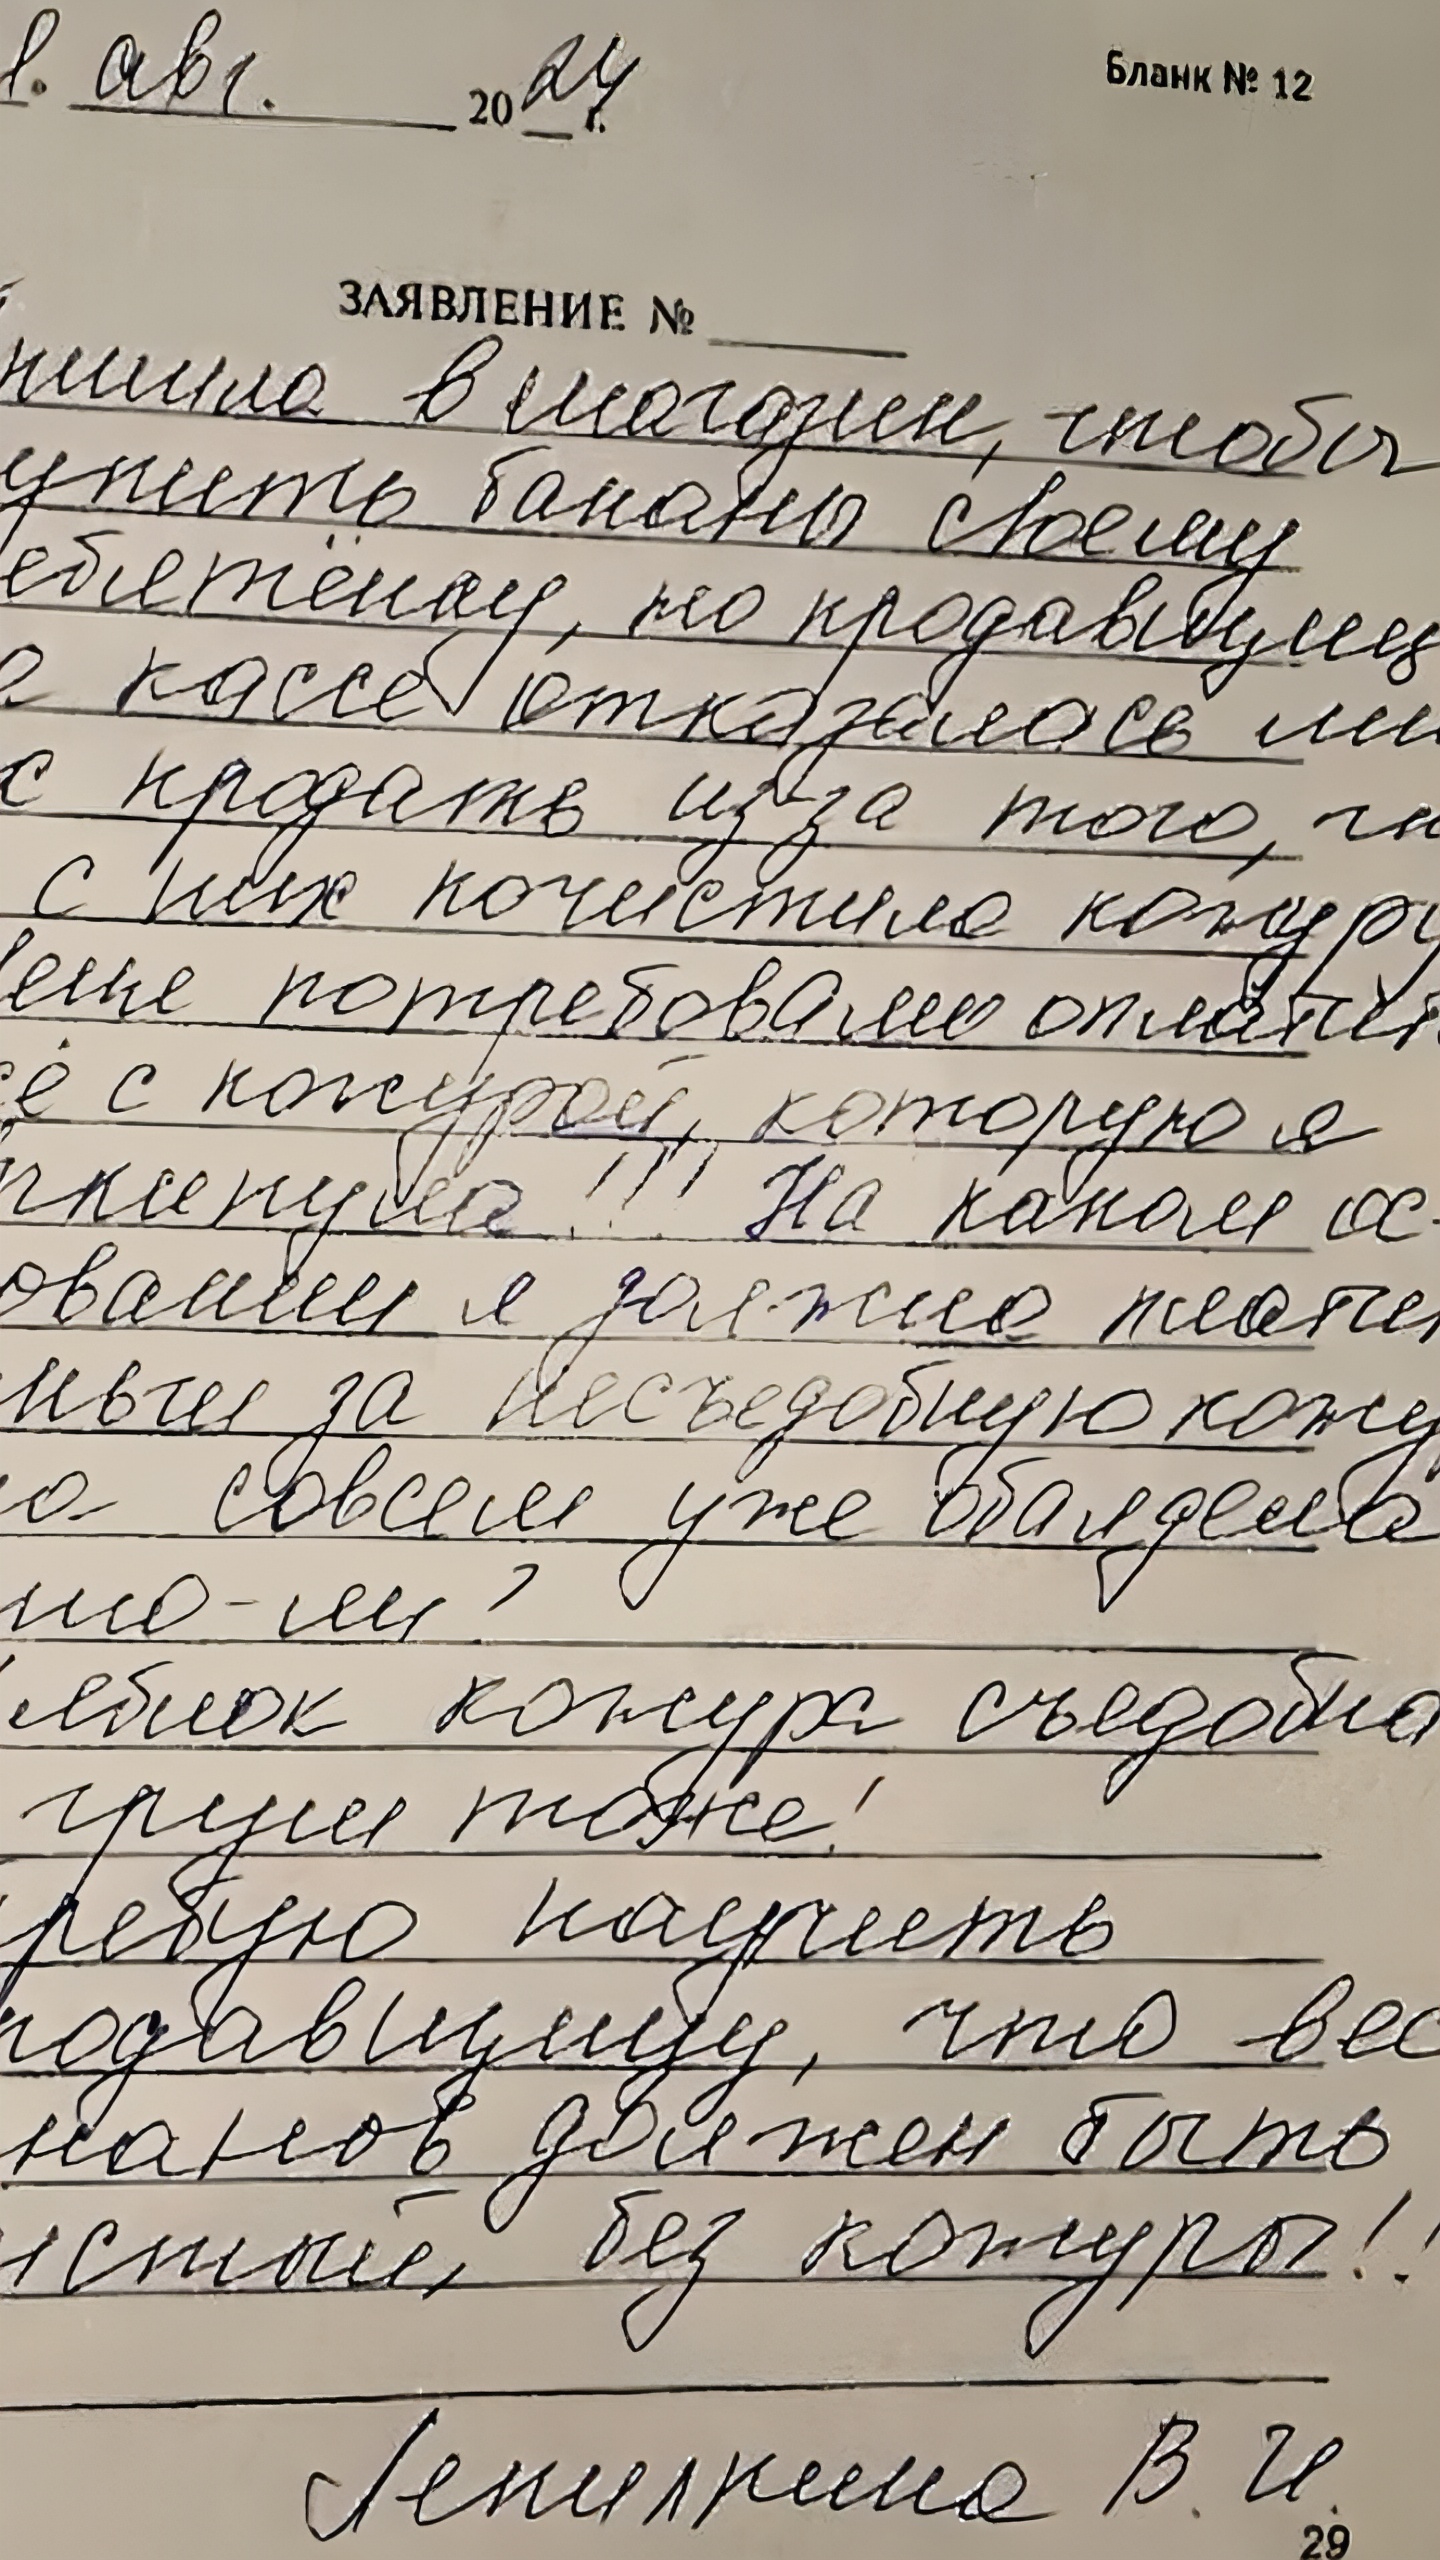 авг. 2024 г.
Бланк № 12
ЗАЯВЛЕНИЕ №
в магазин, чтобы
упить бананы своему
ебятёнку, но продавщиц
а кассе отказалась мн
с продать из-за того, чт
с них почистила кожуру
Меня потребовали оплатить
сё с кожурой, которую я
ткинула!!! На каком ос-
овании я должна платит
ньги за несъедобную кожу
совсем уже обалдела
что-ли?
яблок кожура съедобна
груш тоже!
ребую научить
родавщицу, что вес
нанов должен быть
истый, без кожуры!!
Лепилкина В. И.
29